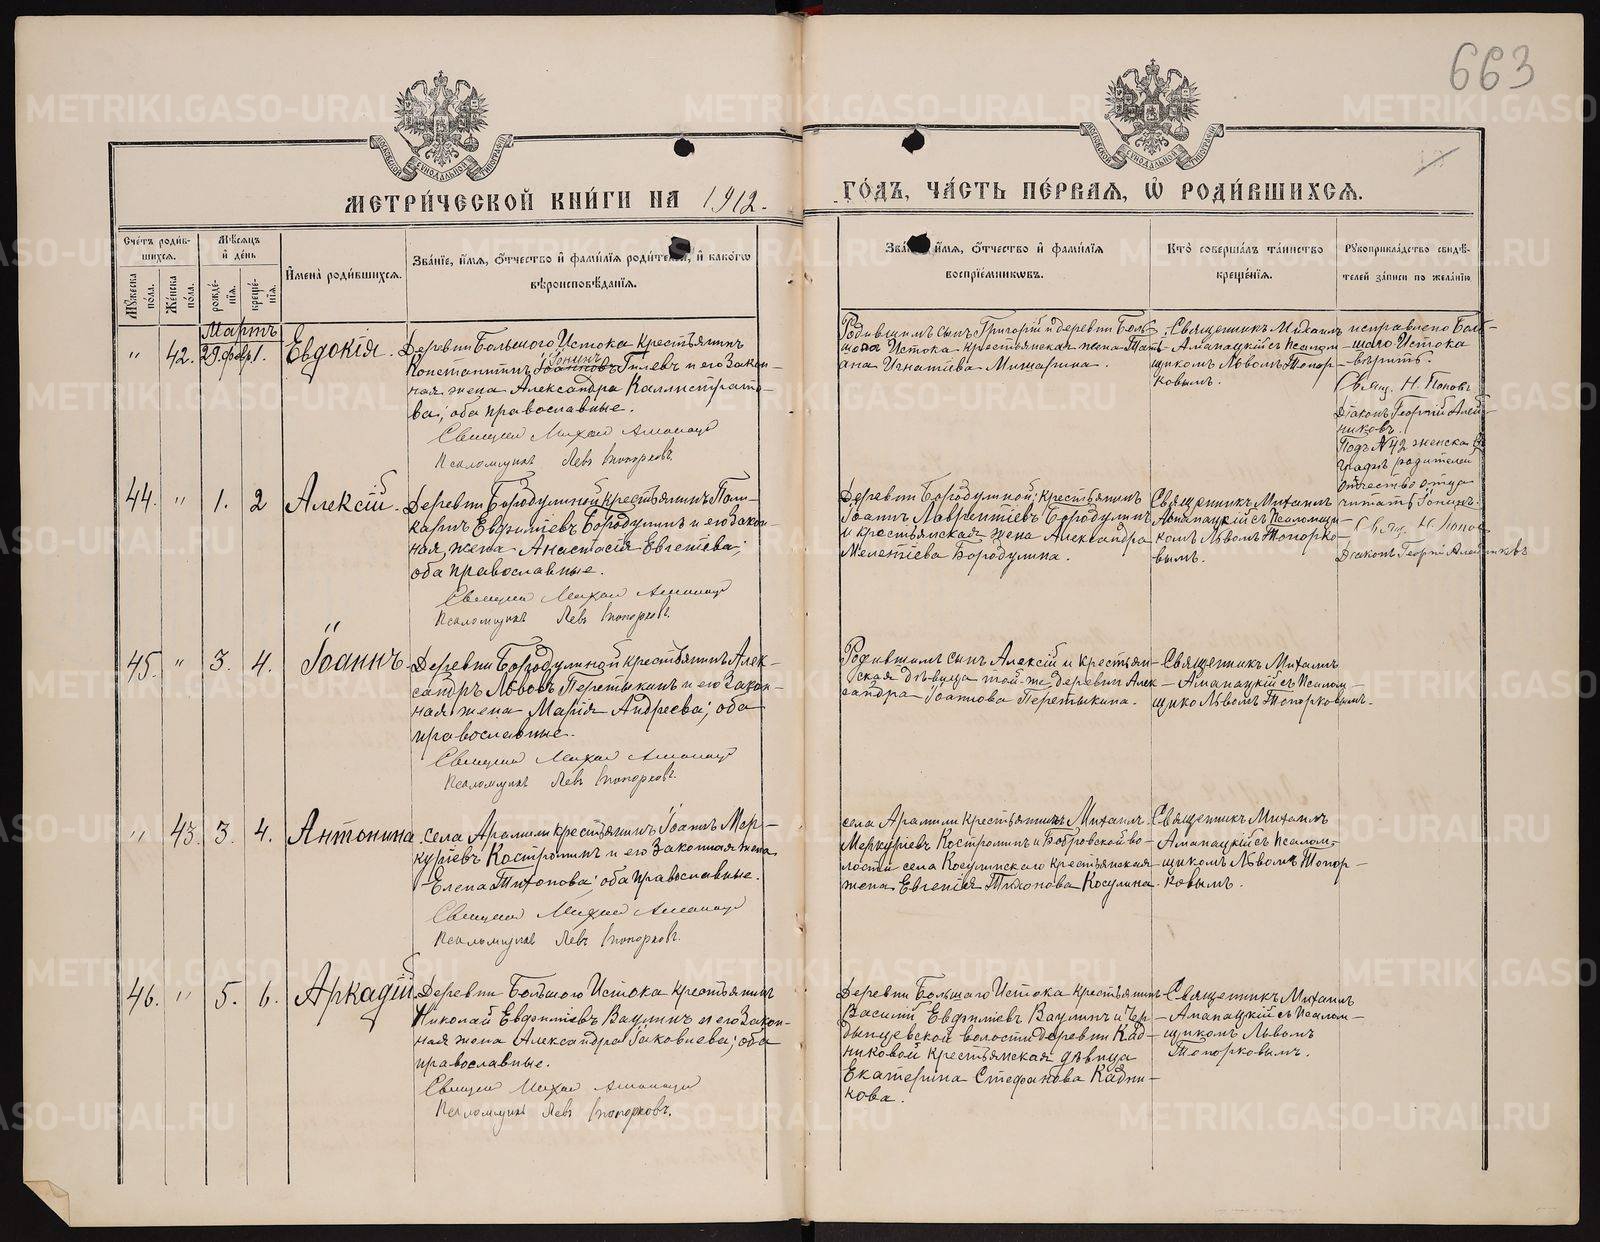 663
МЕТРИ́ЧЕСКОЙ КНИ́ГИ НА 1912.
ГО́ДЪ, ЧА́СТЬ ПЕ́РВАЯ, Ѽ РОДИ́ВШИХСЯ.
МОСКОВСКОЙ СѴНОДАЛЬНОЙ ТИПОГРАФІИ
МОСКОВСКОЙ СѴНОДАЛЬНОЙ ТИПОГРАФІИ
Сче́тъ роди́в-
шихся.
Мꙋ́жеска
по́ла.
Же́нска
по́ла.
Мѣ́сяцъ
и҆ де́нь
рожде́-
нїя.
креще́-
нїя.
И҆мена̀ роди́вшихся.
Зва́нїе, и҆́мя, ѻ҆́тчество и҆ фами́лїя роди́телей, и҆ како́гѡ
вѣроисповѣ́данїя.
Зва́нїе, и҆́мя, ѻ҆́тчество и҆ фами́лїя
воспрїе́мникѡвъ.
Кто̀ соверша́лъ та́инство
креще́нїя.
Рꙋкоприкла́дство свидѣ́-
телей за́писи по жела́нїю.
Мартъ
"
42.
29 февр.
1.
Евдокія.
Деревни Большого Истока крестьянинъ
Іонинъ
Константинъ Іоанновъ Гилевъ и его закон-
ная жена Александра Каллистрато-
ва; оба православные.
Священникъ Михаилъ Аманацкій
Псаломщикъ Левъ Топорковъ.
Родившимъ сынъ Григорій и деревни Боль-
шого Истока крестьянская жена Тать-
ана Игнатіева Мишарина.
Священникъ Михаилъ
Аманацкій съ псалом-
щикомъ Львомъ Топор-
ковымъ.
исправлено Боль-
шаго Истока
вѣрить.
Свящ. Н. Поповъ
Діаконъ Георгій Алей-
никовъ.
Подъ № 42 женска въ
графѣ родителей
отчество отца
читать Іонинъ.
Свящ. Н. Поповъ
Діаконъ Георгій Алейниковъ
44.
"
1.
2
Алексій.
Деревни Бородулиной крестьянинъ Поли-
карпъ Евфиміевъ Бородулинъ и его закон-
ная жена Анастасія Евгеніева;
оба православные.
Священникъ Михаилъ Аманацкій
Псаломщикъ Левъ Топорковъ.
Деревни Бородулиной, крестьянинъ
Іоаннъ Лаврентіевъ Бородулинъ
и крестьянская жена Александра
Мелетіева Бородулина.
Священникъ Михаилъ
Аманацкій съ псаломщи-
комъ Львомъ Топорко-
вымъ.
45.
"
3.
4.
Іоаннъ.
Деревни Бородулиной крестьянинъ Алек-
сандръ Львовъ Перетыкинъ и его закон-
ная жена Марія Андреева; оба
православные.
Священникъ Михаилъ Аманацкій
Псаломщикъ Левъ Топорковъ.
Родившимъ сынъ Алексій и крестьян-
ская дѣвица той-же деревни Алек-
сандра Іоаннова Перетыкина.
Священникъ Михаилъ
Аманацкій съ псалом-
щико Львомъ Топорковымъ.
"
43.
3.
4.
Антонина
села Арамили крестьянинъ Іоаннъ Мер-
куріевъ Костроминъ и его законная жена
Елена Тихонова; оба православные.
Священникъ Михаилъ Аманацкій
Псаломщикъ Левъ Топорковъ.
села Арамили крестьянинъ Михаилъ
Меркуріевъ Костроминъ и Бобровской во-
лости села Косулинскаго крестьянская
жена Евгенія Тихонова Косулина.
Священникъ Михаилъ
Аманацкій съ псалом-
щикомъ Львомъ Топор-
ковымъ.
46.
"
5.
6.
Аркадій
Деревни Большого Истока крестьянинъ
Николай Евфиміевъ Ваулинъ и его закон-
ная жена Александра Іаковлева; оба
православные.
Священникъ Михаилъ Аманацкій
Псаломщикъ Левъ Топорковъ.
Деревни Большаго Истока крестьянинъ
Василій Евфиміевъ Ваулинъ и Бр-
дынцевской волости деревни Кад-
никовой крестьянская дѣвица
Екатерина Стефанова Кадни-
кова.
Священникъ Михаилъ
Аманацкій съ псалом-
щикомъ Львомъ
Топорковымъ.
METRIKI.GASO-URAL.RU